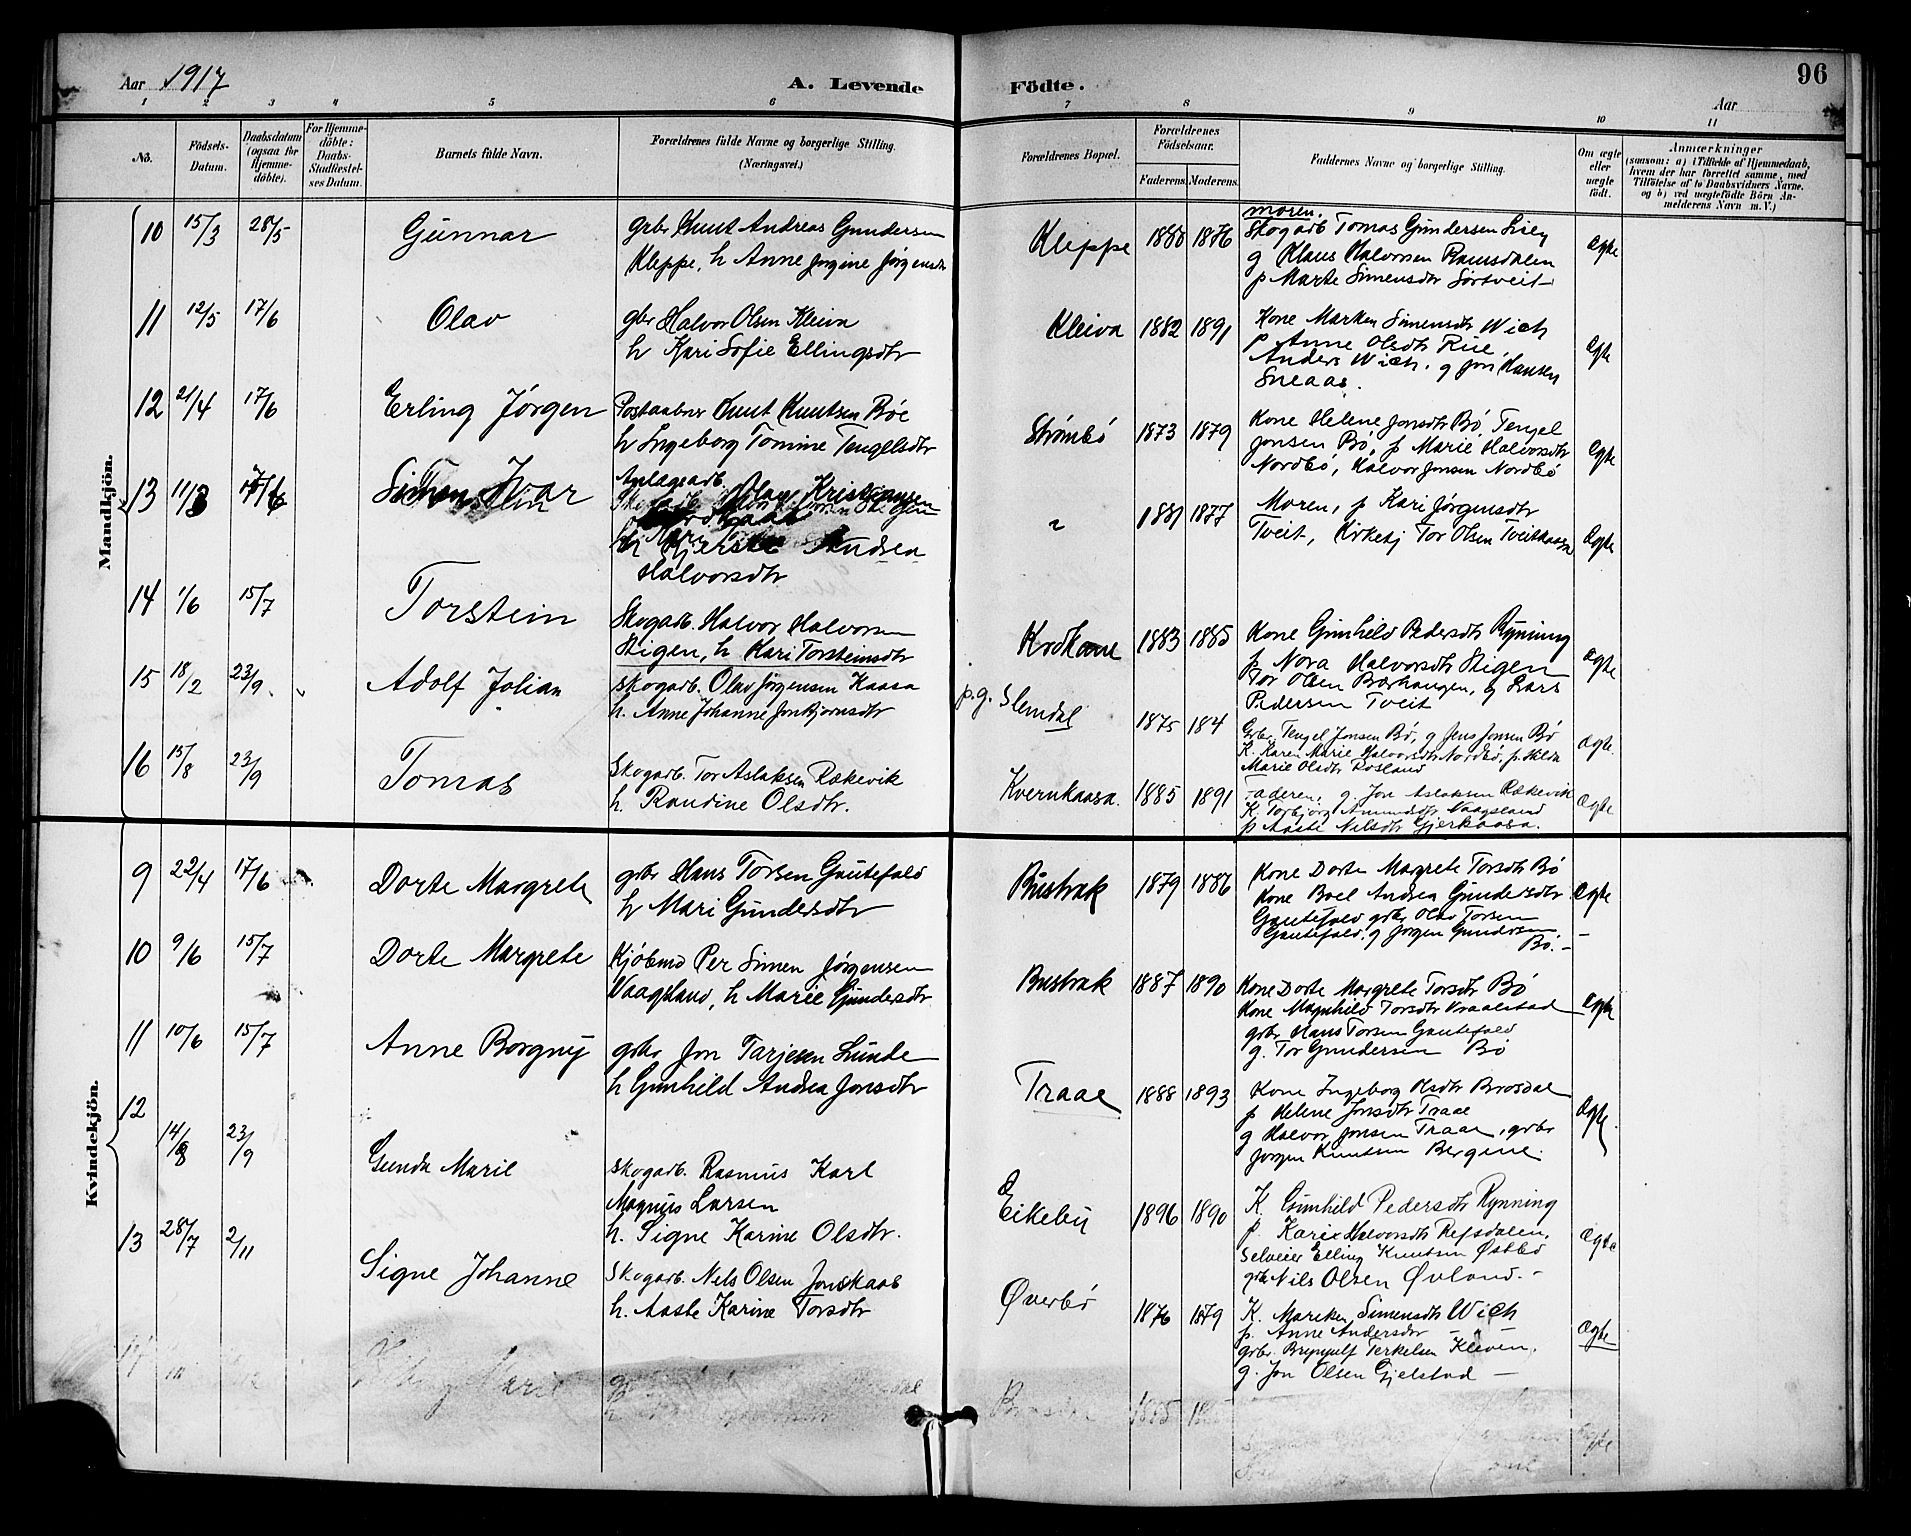 Aar 1917
A. Levende
Födte.
96
Aar
1 2 3 4 5 6 7 8 9 10 11
No.
Födsels-Datum.
Daabsdatum (ogsaa for Hjemme-döbte).
For Hjemme-döbte: Daabs-Stadfæstel-ses Datum.
Barnets fulde Navn.
Forældrenes fulde Navne og borgerlige Stilling. (Næringsvei.)
Forældrenes Bopæl.
Forældrenes Födselsaar.
Faderens. Moderens.
Faddernes Navne og borgerlige Stilling.
Om ægte eller uægte födt.
Anmærkninger
(saasom: a) i Tilfælde af Hjemmedaab, hvem der har forrettet samme, med Tilföielse af to Daabsvidners Navne. og b) ved uægtefödte Börn An-melderens Navn m. V.)
Mandkjön.
10 15/3 28/5 Gunnar
grbr Knut Andreas Gundersen
Kleppe, h Anne Jørgine Jørgensdtr
Kleppe 1880 1876
moren.
Skogarb Tomas Gundersen
g Klaus Halvorsen Ramsdalen
p Marte Simensdtr Sørtveit
Ægte
11 12/5 17/6 Olav
gbr Halvor Olsen Kleiva
h Kari Sofie Ellingsdtr
Kleiva 1882 1891
Kone Marken Simensdtr Wich
p Anne Olsdtr Rue,
Anders Wich, g Jon Hansen
Sneaas.
Ægte
12 21/4 17/6 Erling Jørgen
Postaabner Knut Knutsen Bøe
h Ingeborg Tomine Tengelsdtr
Strømbø 1873 1879
Kone Helene Jonsdtr Bø, Tengel
Jonsen Bø, p Marie Halvorsdtr
Nordbø, Halvor Jonsen Nordbø
Ægte
13 11/3 17/6 Simen Ivar
Anlægsarb. Olav Kristiansen
h Andrea
Halvorsdtr
" 1881 1877
Moren, p Kari Jørgensdtr
Tveit, Kirketj Tor Olsen Tveitkaasa
Ægte
14 1/6 15/7 Torstein
Skogarb. Halvor Halvorsen
Stigen, h Kari Torsteinsdtr
1883 1885
Kone Gunhild Pedersdtr Rynning
p Nora Halvorsdtr Stigen
Tor Olsen Bærhaugen, g Lars
Pedersen Tveit
Ægte
15 18/2 23/9 Adolf Julian
skogarb. Olav Jørgensen Kaasa
h. Anne Johanne Jonbjørnsdtr
p.g. Slemdal 1875 184
Grbr. Tengel Jonsen Bø, g Jens Jonsen Bø
K. Karen Marie Halvorsdtr Nordbø, p. Hilda
Marie Olsdtr Rosland
Ægte.
16 15/8 23/9 Tomas
Skogarb. Tor Aslaksen Rækevik
h. Randine Olsdtr.
Kvernkaasa. 1885 1891
Faderen, g. Jon Aslaksen Rækevik
K. Torbjørg Amundsdtr Vaagsland
p Aaste Nilsdtr Gjerkaasa.
Ægte
Kvindekjön.
9 22/4 17/6 Dorte Margrete
grbr Hans Torsen Gautefald
h Mari Gundersdtr
Bustrak 1879 1886
Kone Dorte Margrete Torsdtr Bø
Kone Boel Andrea Gundersdtr
Gautefald grbr Olav Torsen
Gautefald, g Jørgen Gundersen
Bø.
Ægte
10 9/6 15/7 Dorte Margrete
Kjøbmd Per Simen Jørgensen
Vaagsland, h Marie Gundersdtr
Bustrak 1887 1890
Kone Dorte Margrete Torsdtr Bø
Kone Magnhild Torsdtr Vraalstad
grbr Hans Torsen Gautefald
g. Tor Gundersen Bø
Ægte
11 10/6 15/7 Anne Borgny
grbr Jon Tarjesen Lunde
h Gunhild Andrea Jonsdtr
Traae 1888 1893
Kone Ingeborg Olsdtr Brosdal
p Helene Jonsdtr Traae
g Halvor Jonsen Traae, grbr
Jørgen Knutsen Bergene.
Ægte
12 14/8 23/9 Gunda Marie
skogarb. Rasmus Karl
Magnus Larsen
h. Signe Karine Olsdtr.
Eikeby 1896 1890
K. Gunhild Pedersdtr Rynning
p. Karie Halvorsdtr Refsdalen,
Selveier Elling Knutsen Østbø
grbr Nils Olsen Øvland.
Ægte
13 28/7 2/11 Signe Johanne
Skogarb. Nils Olsen Jonskaas
h. Aaste Karine Torsdtr
Øverbø 1876 1879
K. Mariken Simensdtr Wich
p. Anne Andersdtr —
grbr. Brynjulf Terkelsen Kleven.
g. Jon Olsen Gjelstad —
Ægte
14
Marie
h
1885
Ægte